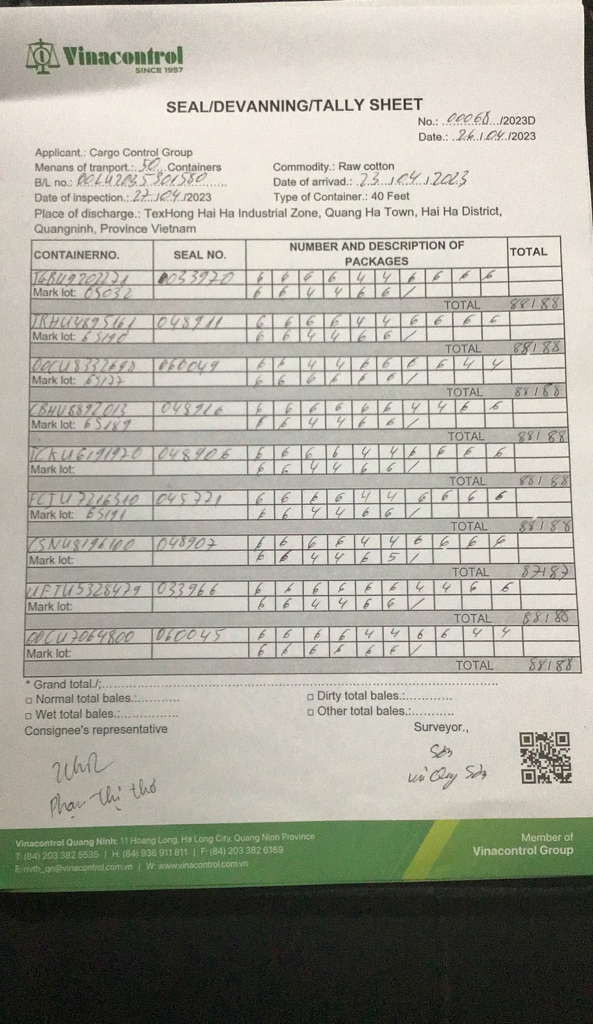 Vinacontrol
SINCE 1957
SEAL/DEVANNING/TALLY SHEET
No.: 00068 /2023D
Date.: 26/04/2023
Applicant.: Cargo Control Group
Menans of tranport.: 50 Containers Commodity.: Raw cotton
B/L no.: Date of arrivad.: 23/04/2023
Date of inspection.: 27/04/2023 Type of Container.: 40 Feet
Place of discharge.: TexHong Hai Ha Industrial Zone, Quang Ha Town, Hai Ha District,
Quangninh, Province Vietnam
CONTAINERNO. SEAL NO. NUMBER AND DESCRIPTION OF PACKAGES TOTAL
033920 6 6 6 6 4 4 6 6 6 6
Mark lot: 65032 6 6 4 4 6 6 /
TOTAL 88/88
048911 6 6 6 6 4 4 6 6 6 6
Mark lot: 65190 6 6 4 4 6 6 /
TOTAL 88/88
060049 6 6 4 4 6 6 6 6 4 4
Mark lot: 6 6 6 6 6 6 /
TOTAL 88/88
CBHU8892013 048916 6 6 6 6 6 6 4 4 6 6
Mark lot: 65189 6 6 4 4 6 6 /
TOTAL 88/88
TCKU6191970 048906 6 6 6 6 4 4 6 6 6 6
Mark lot: 6 6 4 4 6 6 /
TOTAL 88/88
045771 6 6 6 6 4 4 6 6 6 6
Mark lot: 65191 6 6 4 4 6 6 /
TOTAL 88/88
CSNU8196100 048907 6 6 6 6 4 4 6 6 6 6
Mark lot: 6 6 4 4 6 5 /
TOTAL 87/87
UETU5328479 033966 6 6 6 6 6 6 4 4 6 6
Mark lot: 6 6 4 4 6 6 /
TOTAL 88/88
OOCU7064800 060045 6 6 6 6 4 4 6 6 4 4
Mark lot: 6 6 6 6 6 6 /
TOTAL 88/88
* Grand total./;
□ Normal total bales.: □ Dirty total bales.:
□ Wet total bales.: □ Other total bales.:
Consignee's representative Surveyor.,
Sơn
Phạm Thị Thơ Vũ Quý Sơn
Vinacontrol Quang Ninh: 11 Hoang Long, Ha Long City, Quang Ninh Province
T: (84) 203 382 5535 | H: (84) 936 911 811 | F: (84) 203 382 6169
E: nvth_qn@vinacontrol.com.vn | W: www.vinacontrol.com.vn
Member of
Vinacontrol Group